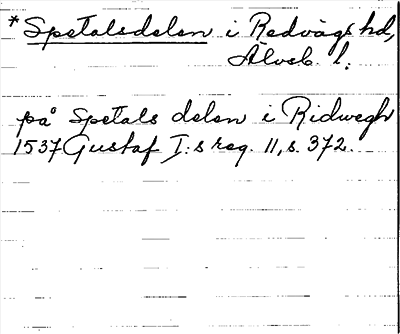 *Spetalsdelen i Redvägs hd,
Älvsb. l.
på Spetals delen i Ridwegh
1537 Gustaf I:s reg. 11, s. 372.